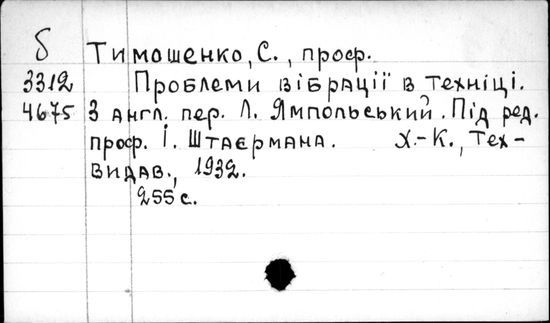 б Тимошенко, С., проф.
3312 Проблеми вібрації в техніці.
4675 З англ. пер. Л. Ямпольський. Під ред.
проф. І. Штаєрмана. Х.-К., Тех-
видав., 1932.
255 с.